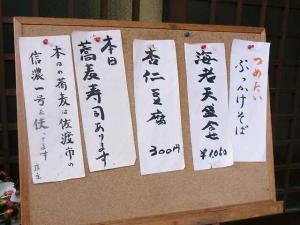 つめたい
ぶっかけそば
海老天盛合
¥1,050
杏仁豆腐
300円
本日
蕎麦寿司あります
本日の蕎麦は佐渡市の
信濃一号を使ってます
店主